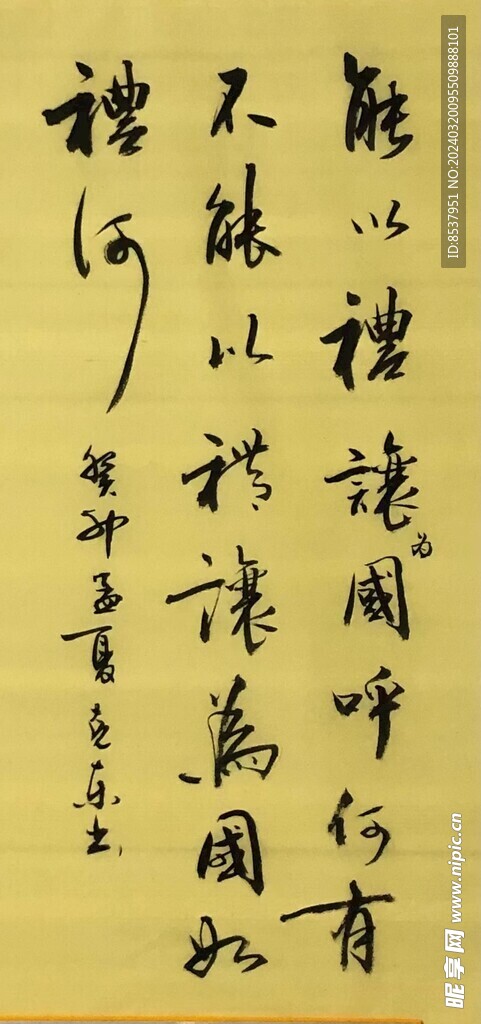 能以禮讓为國呼何有
不能以禮讓為國如
禮何
癸卯孟夏克东书
ID:8537951 NO:20240320095509888101
昵享网 www.nipic.cn